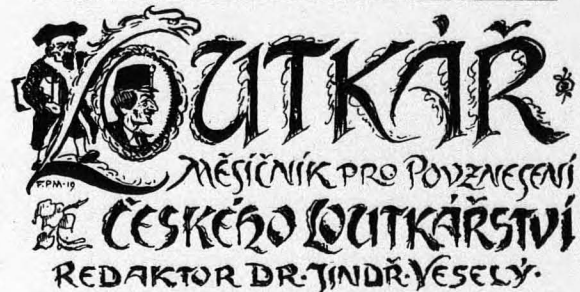 LOUTKÁŘ
F.PM-19
MĚSÍČNÍK PRO POVZNESENÍ
ČESKÉHO LOUTKÁŘSTVÍ
REDAKTOR DR·JINDŘ·VESELÝ·